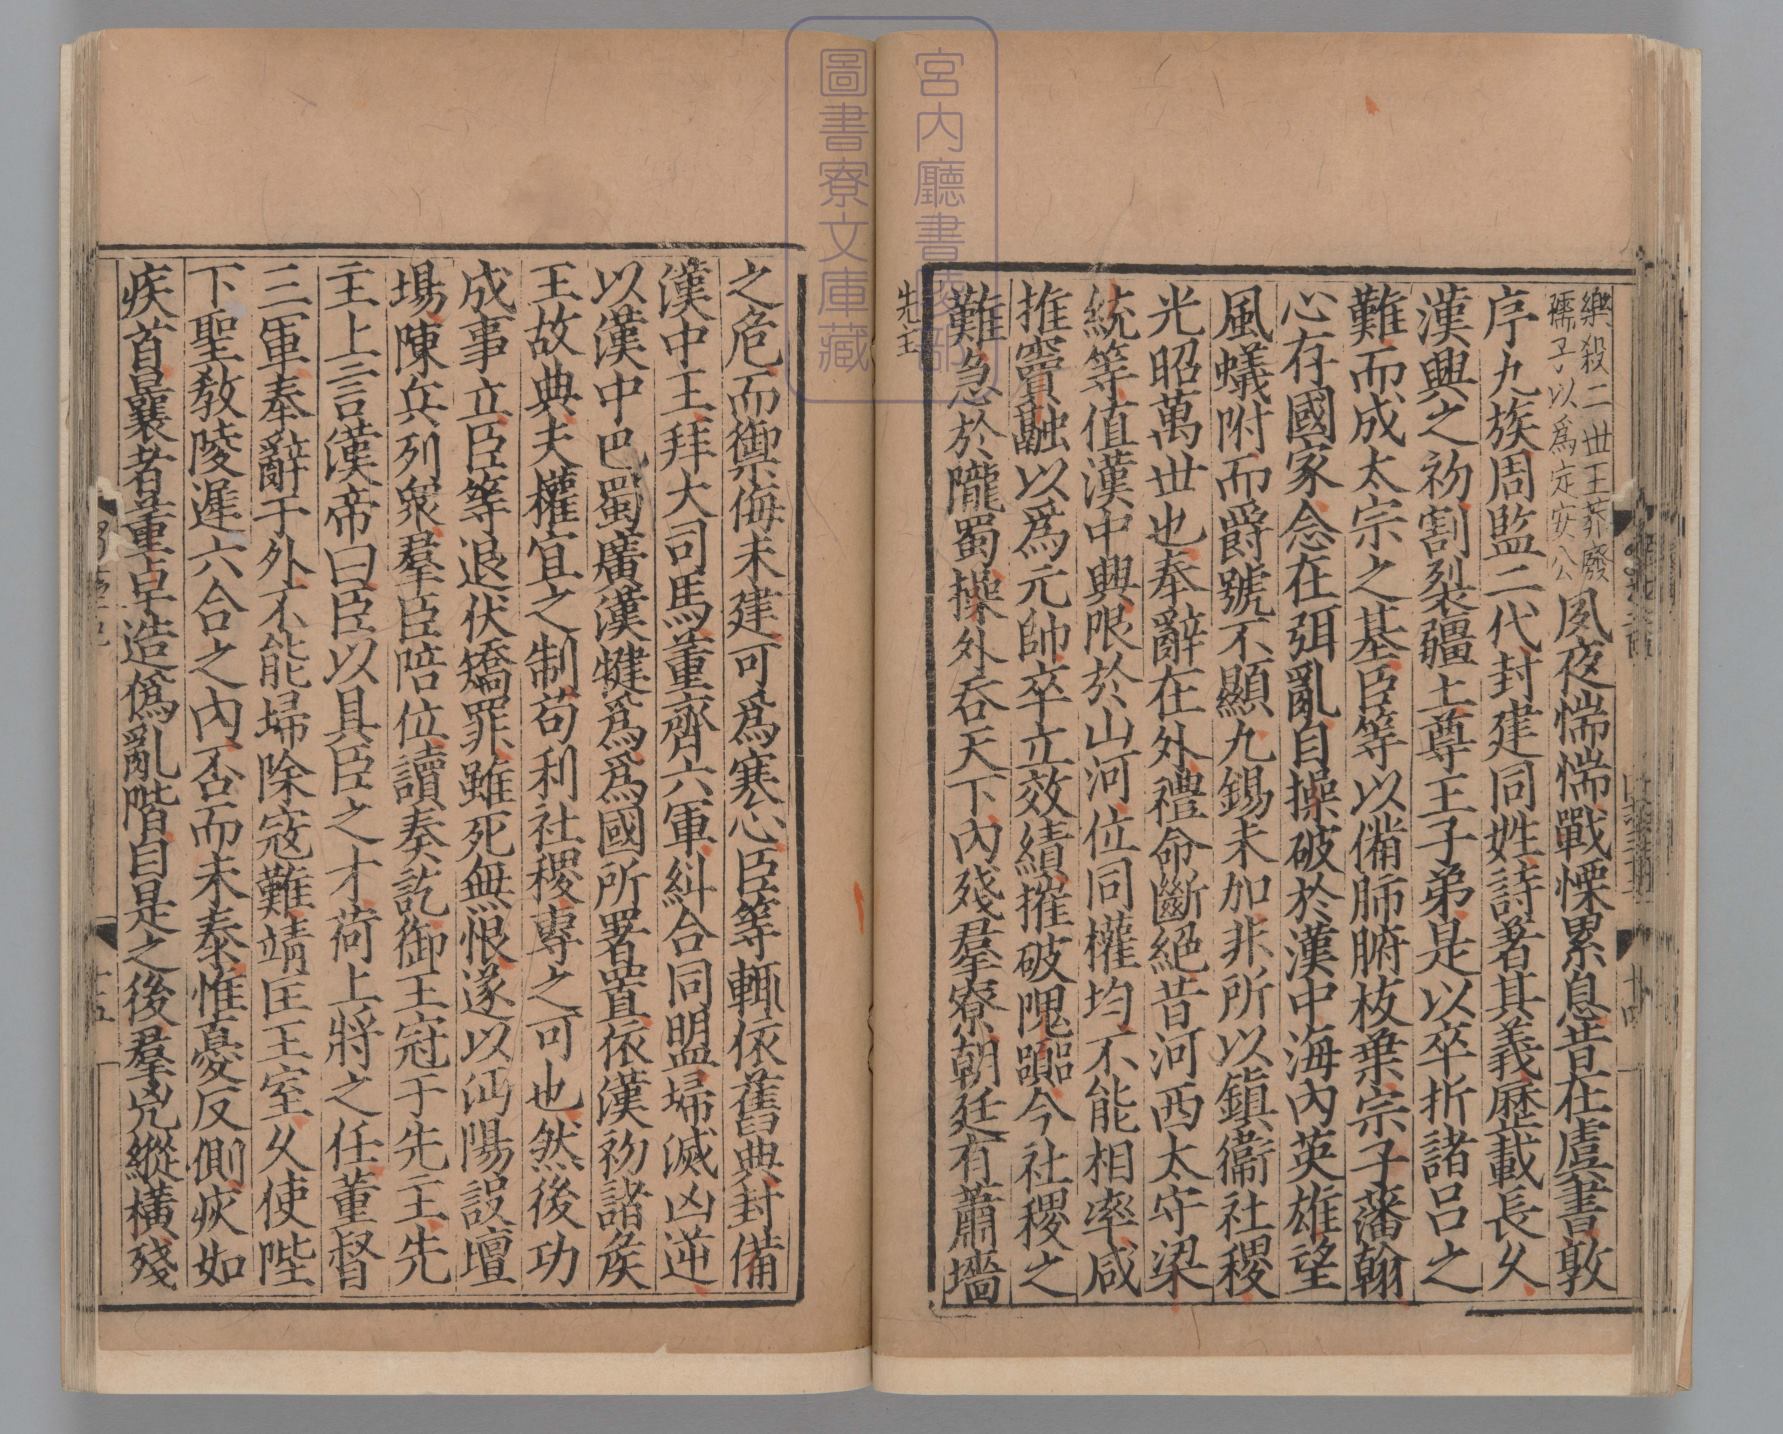 宮内廳書陵部
圖書寮文庫藏
樂殺二世王莽廢
孺子以爲定安公
夙夜惴惴戰慄累息昔在虞書敦
序九族周監二代封建同姓詩著其義歷載長久
漢興之初割裂疆土尊王子弟是以卒折諸呂之
難而成太宗之基臣等以備肺腑枝葉宗子藩翰
心存國家念在弭亂自操破於漢中海內英雄望
風蟻附而爵號不顯九錫未加非所以鎮衞社稷
光昭萬世也奉辭在外禮命斷絕昔河西太守梁
統等值漢中興限於山河位同權均不能相率咸
推竇融以爲元帥卒立效績摧破隗囂今社稷之
難急於隴蜀操外吞天下內殘羣寮朝廷有蕭墻
先主
之危而禦侮未建可爲寒心臣等輒依舊典封備
漢中王拜大司馬董齊六軍糾合同盟埽滅凶逆
以漢中巴蜀廣漢犍爲爲國所署置依漢初諸侯
王故典夫權宜之制苟利社稷專之可也然後功
成事立臣等退伏矯罪雖死無恨遂以沔陽設壇
場陳兵列衆羣臣陪位讀奏訖御王冠于先主先
主上言漢帝曰臣以具臣之才荷上將之任董督
三軍奉辭于外不能埽除寇難靖匡王室久使陛
下聖教陵遲六合之內否而未泰惟憂反側疢如
疾首曩者董卓造僞亂階自是之後羣兇縱橫殘